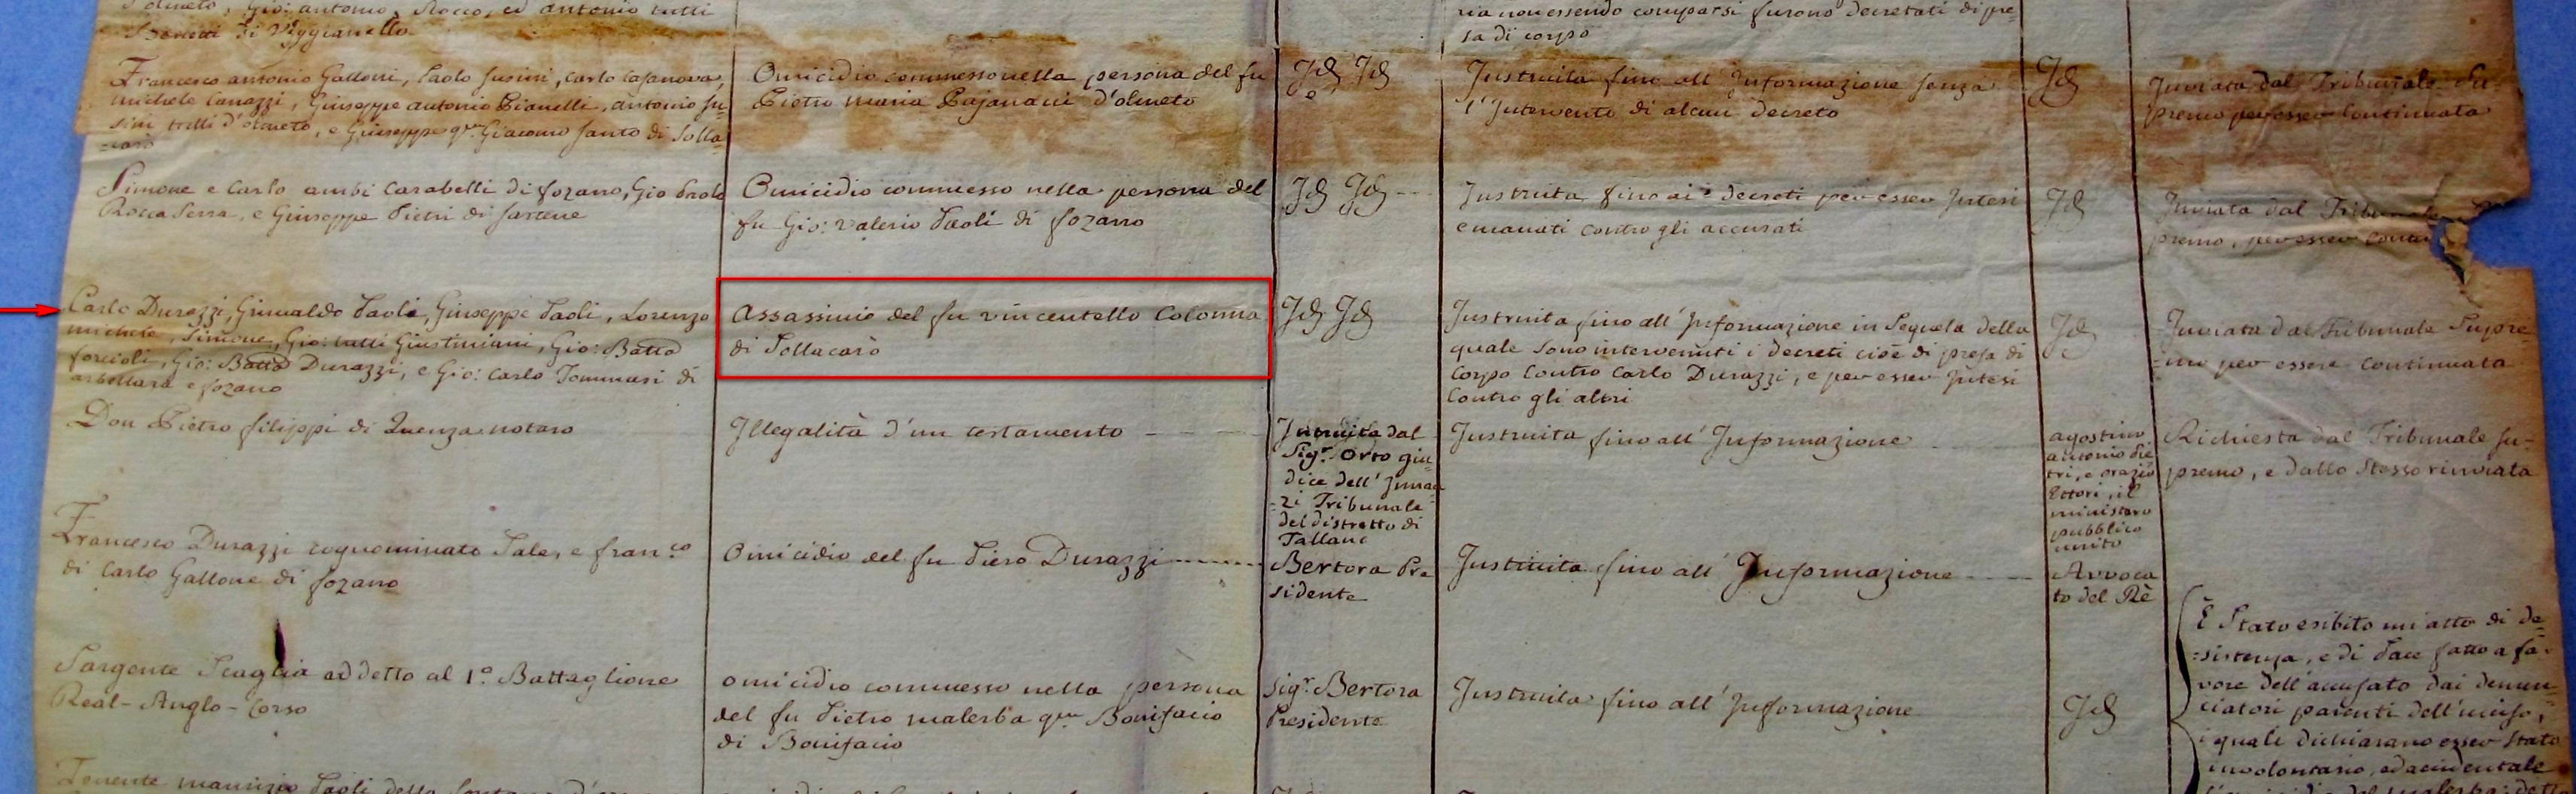 Olmeto, Gio: antonio, Rocco, ed antonio tutti
Benetti di Viggianello
ria non essendo comparsi furono decretati di pre=
sa di corpo
Francesco antonio Galloni, Paolo Susini, Carlo Casanova,
michele Canazzi, Giuseppe antonio Pianelli, antonio su
sini tutti d'olmeto, e Giuseppe qm Giacomo Santo di Solla
=carò
Omicidio commesso nella persona del fu
Pietro maria Pajanacci d'olmeto
Jd Jd
Instruita fino all'Informazione senza
l'Intervento di alcun decreto
Jd
Inviata dal Tribunale Su=
premo per esser Continuata
Simone e Carlo ambi Carabelli di fozano, Gio Paolo
Rocca Serra, e Giuseppe Pietri di Sartene
Omicidio commesso nella persona del
fu Gio: Valerio Paoli di fozano
Jd Jd
Instruita fino ai decreti per esser Intesi
emanati contro gli accusati
Jd
Inviata dal Tribunale
premo, per esser Conti
Carlo Durazzi, Grimaldo Paoli, Giuseppe Paoli, Lorenzo
michele, Simone, Gio: tutti Giustiniani, Gio: Batta
forcioli, Gio: Batta Durazzi, e Gio: Carlo Tommasi di
arbellara e fozano
Assassinio del fu vincentello Colonna
di Sollacarò
Jd Jd
Instruita fino all'Informazione in Sequela della
quale sono intervenuti i decreti cioè di presa di
Corpo Contro Carlo Durazzi, e per esser Intesi
Contro gli altri
Jd
Inviata dal Tribunale Supre
=mo per essere Continuata
Don Pietro filippi di Quenza notaro
Illegalità d'un testamento
Intruita dal
Sigr. Orto giu
dice dell'Innan
=zi Tribunale
del distretto di
Tallano
Instruita fino all'Informazione
agostino
antonio Pie
tri, e orazio
Ettori, il
ministero
pubblico
unito
Richiesta dal Tribunale Su=
premo, e dallo stesso rinviata
Francesco Durazzi cognominato Pale, e franco
di Carlo Gallone di fozano
Omicidio del fu Piero Durazzi
Bertora Pre
sidente
Instruita fino all'Informazione
Avvoca
to del Rè
Sargente Scaglia addetto al 1º Battaglione
Real-Anglo-Corso
omicidio commesso nella persona
del fu Pietro malerba qm Bonifacio
di Bonifacio
Sigr. Bertora
Presidente
Instruita fino all'Informazione
Jd
È stato esibito un'atto di de=
=sistenza, e di Pace fatto a fa=
vore dell'accusato dai denun=
ciatori parenti dell'ucciso,
i quali dichiarano esser stato
involontario, ed accidentale
Tenente maurizio Paoli della